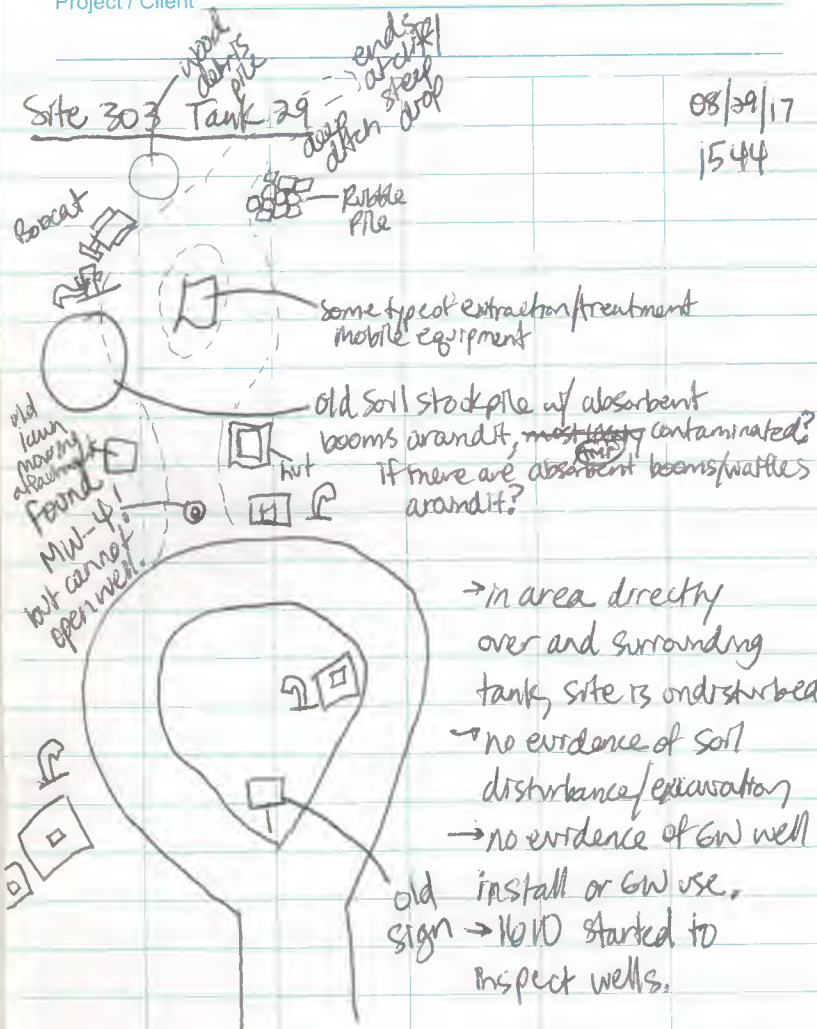 Project / Client
wood
debris
pile
ends
at cliff/
steep
drop
Site 303 Tank 29
deep
ditch
08/29/17
1544
Bobcat
Rubble
Pile
some type of extraction/treatment
mobile equipment
old soil stockpile w/ absorbent
booms around it, most likely contaminated?
if there are absorbent booms/wattles
around it?
old
lawn
mowing
attachment
hut
Found
MW-4!
but cannot
open well.
→ in area directly
over and surrounding
tank, site is undisturbed
→ no evidence of soil
disturbance/excavation
→ no evidence of GW well
install or GW use.
old
sign
→ 1610 started to
inspect wells.